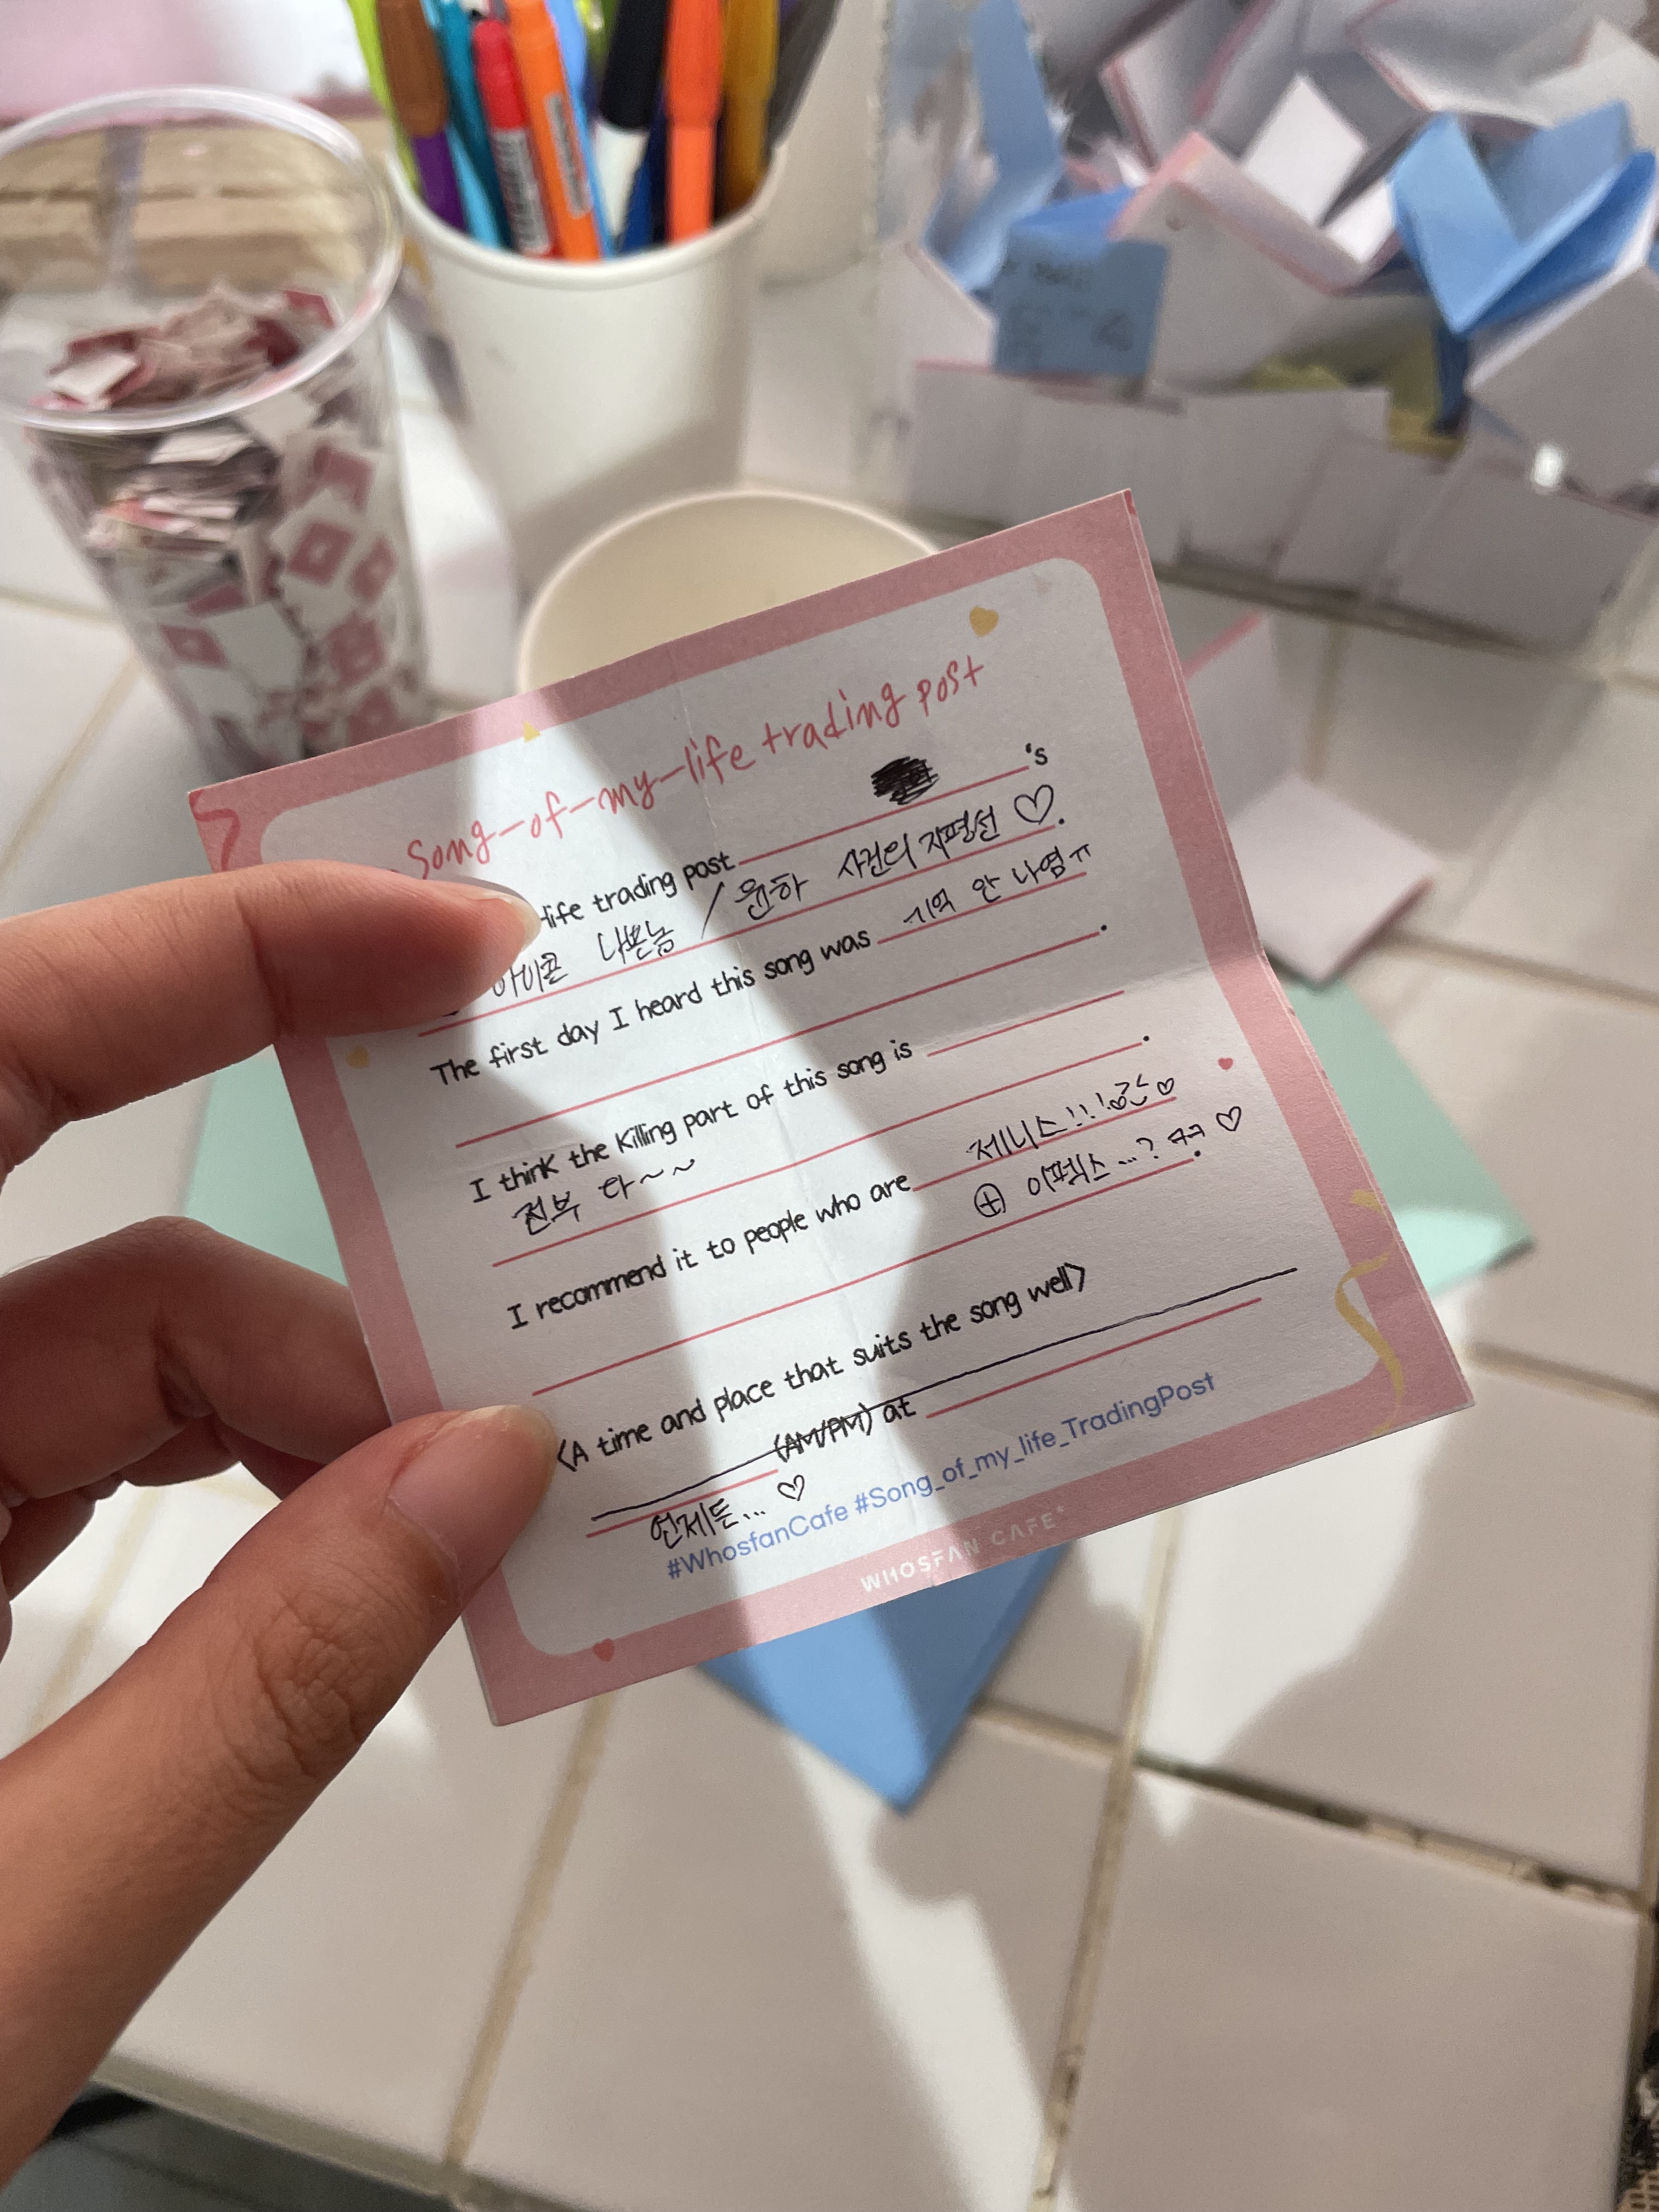 Song-of-my-life trading post
-life trading post 's
아이콘 나쁜놈 / 윤하 사건의 지평선 ♡.
The first day I heard this song was 기억 안 나염ㅠ
.
I think the Killing part of this song is
전부 다~~ .
I recommend it to people who are 제니스!!!
⊕ 이펙스...? ㅋㅋ ♡.
<A time and place that suits the song well>
(AM/PM) at
언제든... ♡
#WhosfanCafe #Song_of_my_life_TradingPost
WHOSFAN CAFE